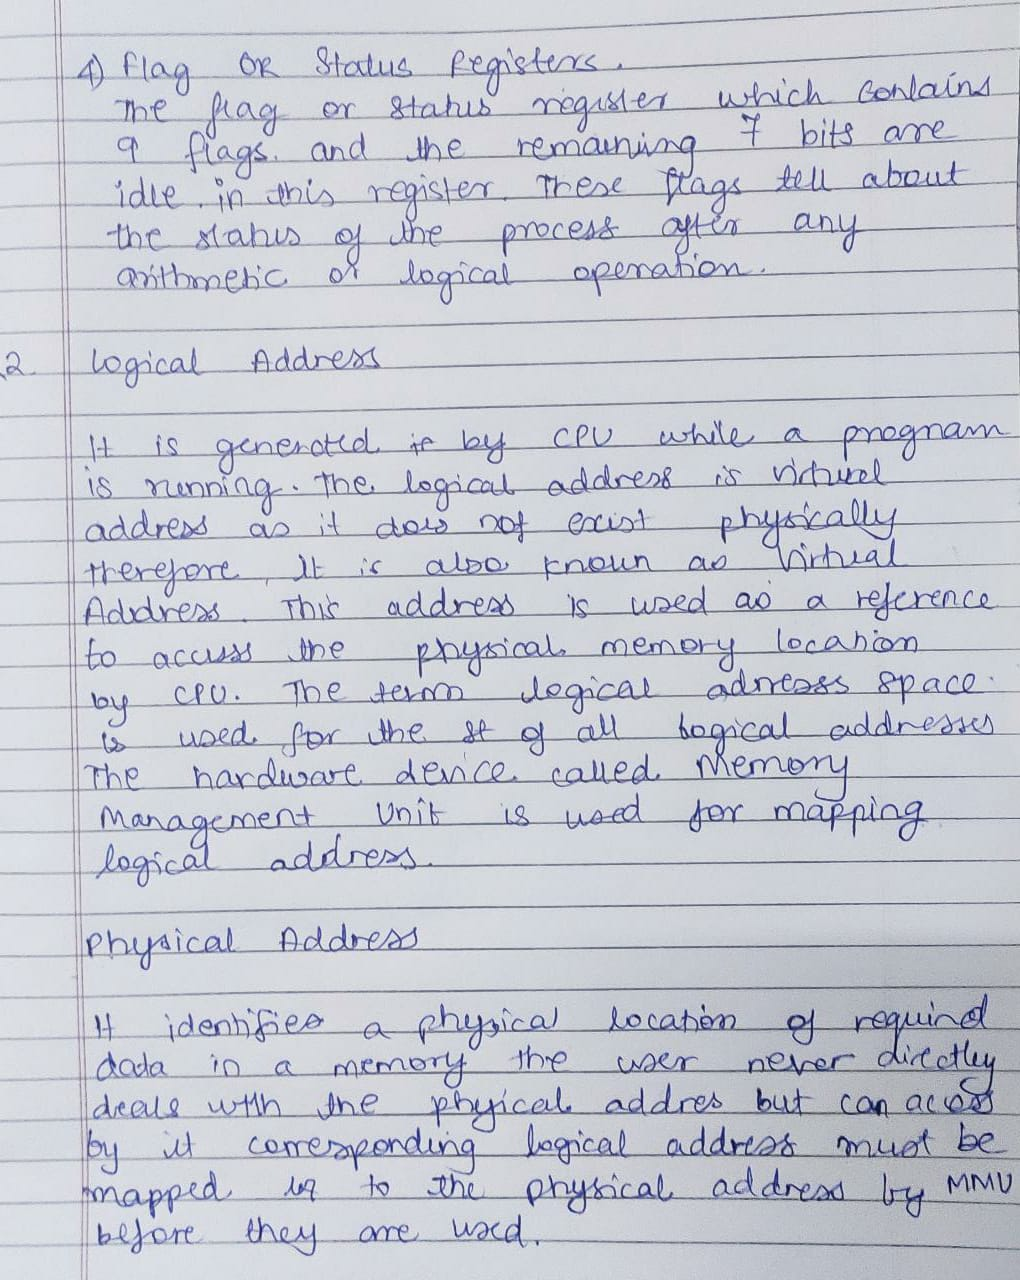 4) Flag OR Status Registers.
The flag or status register which contains
9 flags. and the remaining 7 bits are
idle. in this register. These flags tell about
the status of the process after any
arithmetic or logical operation.
2 Logical Address
It is generated by CPU while a program
is running. The logical address is virtual
address as it does not exist physically
therefore, It is also known as Virtual
Address. This address is used as a reference
to access the physical memory location
by CPU. The term logical adrress space
is used for the st of all logical addresses
The hardware device called Memory
Management Unit is used for mapping
logical address.
Physical Address
It identifies a physical location of required
dada in a memory the user never directley
deals with the phyical addres but can access
by it corresponding logical address must be
mapped to the physical address by MMU
before they are used.